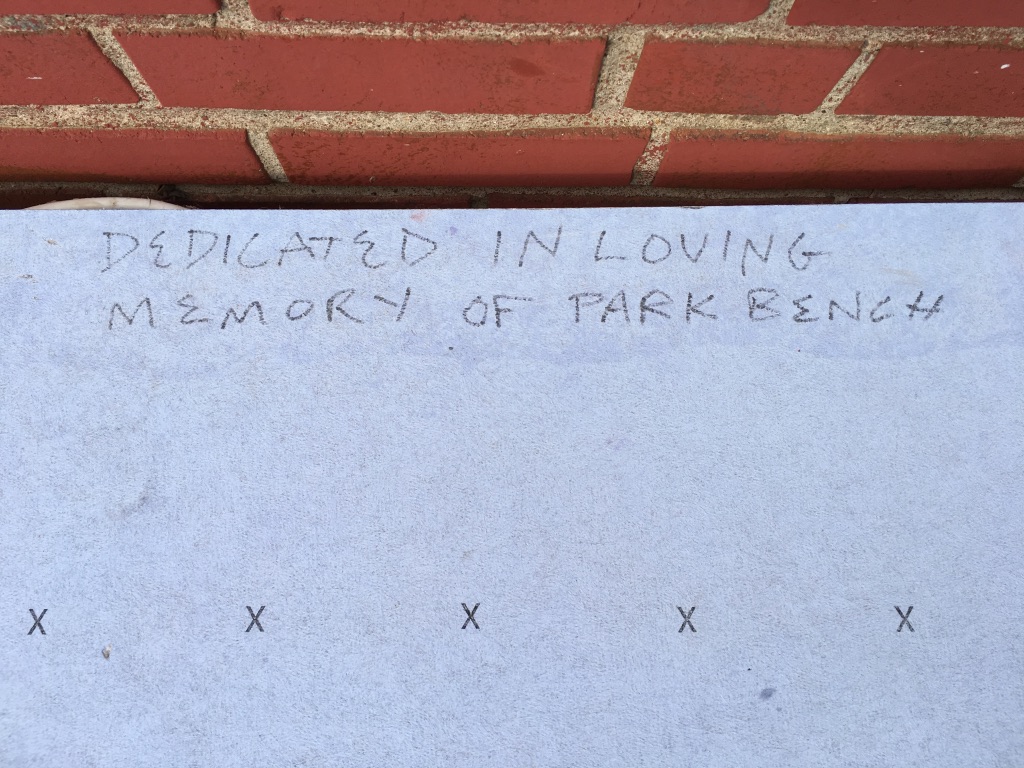 DEDICATED IN LOVING
MEMORY OF PARK BENCH
X X X X X